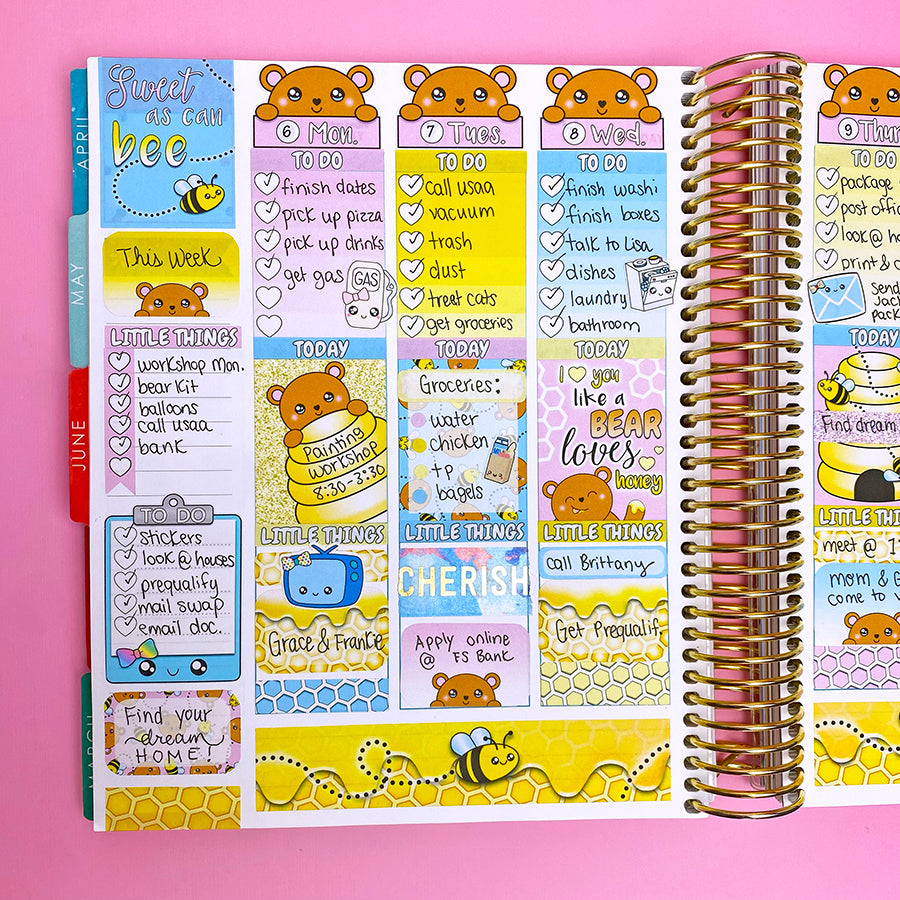 APRIL
MAY
JUNE
MARCH
Sweet
as can
bee
This Week
LITTLE THINGS
workshop Mon.
bear Kit
balloons
call usaa
bank
TO DO
stickers
look @ houses
prequalify
mail swap
email doc.
Find your
dream
HOME!
6 Mon.
TO DO
finish dates
pick up pizza
pick up drinks
get gas
GAS
TODAY
Painting
workshop
8:30-3:30
LITTLE THINGS
Grace & Frankie
7 Tues.
TO DO
call usaa
vacuum
trash
dust
treat cats
get groceries
TODAY
Groceries:
water
chicken
tp
bagels
LITTLE THINGS
CHERISH
Apply online
@ FS Bank
8 Wed.
TO DO
finish washi
finish boxes
talk to Lisa
dishes
laundry
bathroom
TODAY
I you
like a
BEAR
loves
honey
LITTLE THINGS
call Brittany
Get Prequalif.
9 Thur
TO DO
package
post offi
look @ h
print &
Send
Jack
pack
TODAY
Find dream
LITTLE T
meet @ 1
mom &
come to